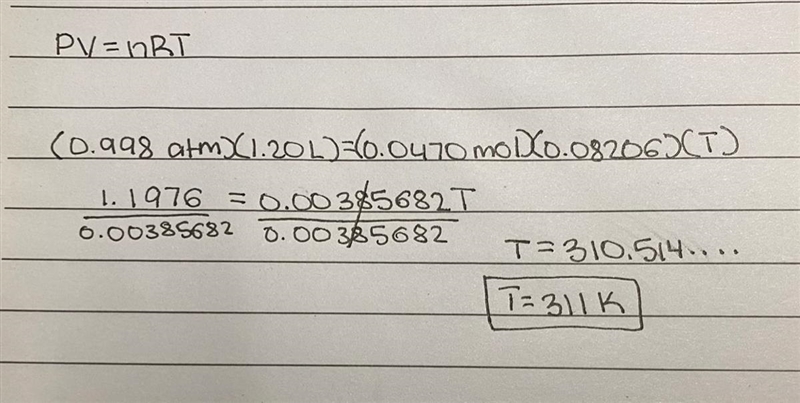 PV=nRT
(0.998 atm)(1.20L)=(0.0470 mol)(0.08206)(T)
1.1976 = 0.00385682T
0.00385682 0.00385682
T=310.514....
T=311K